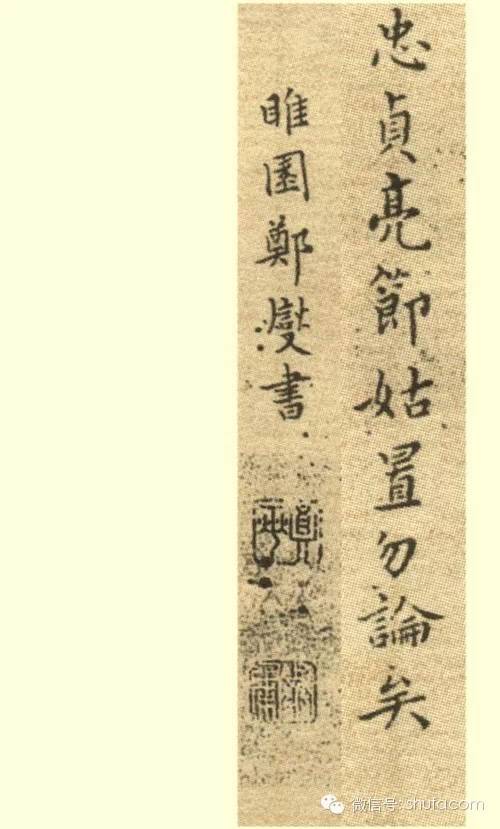 忠貞亮節姑置勿論矣
睢園鄭燮書
微信号:shufacom